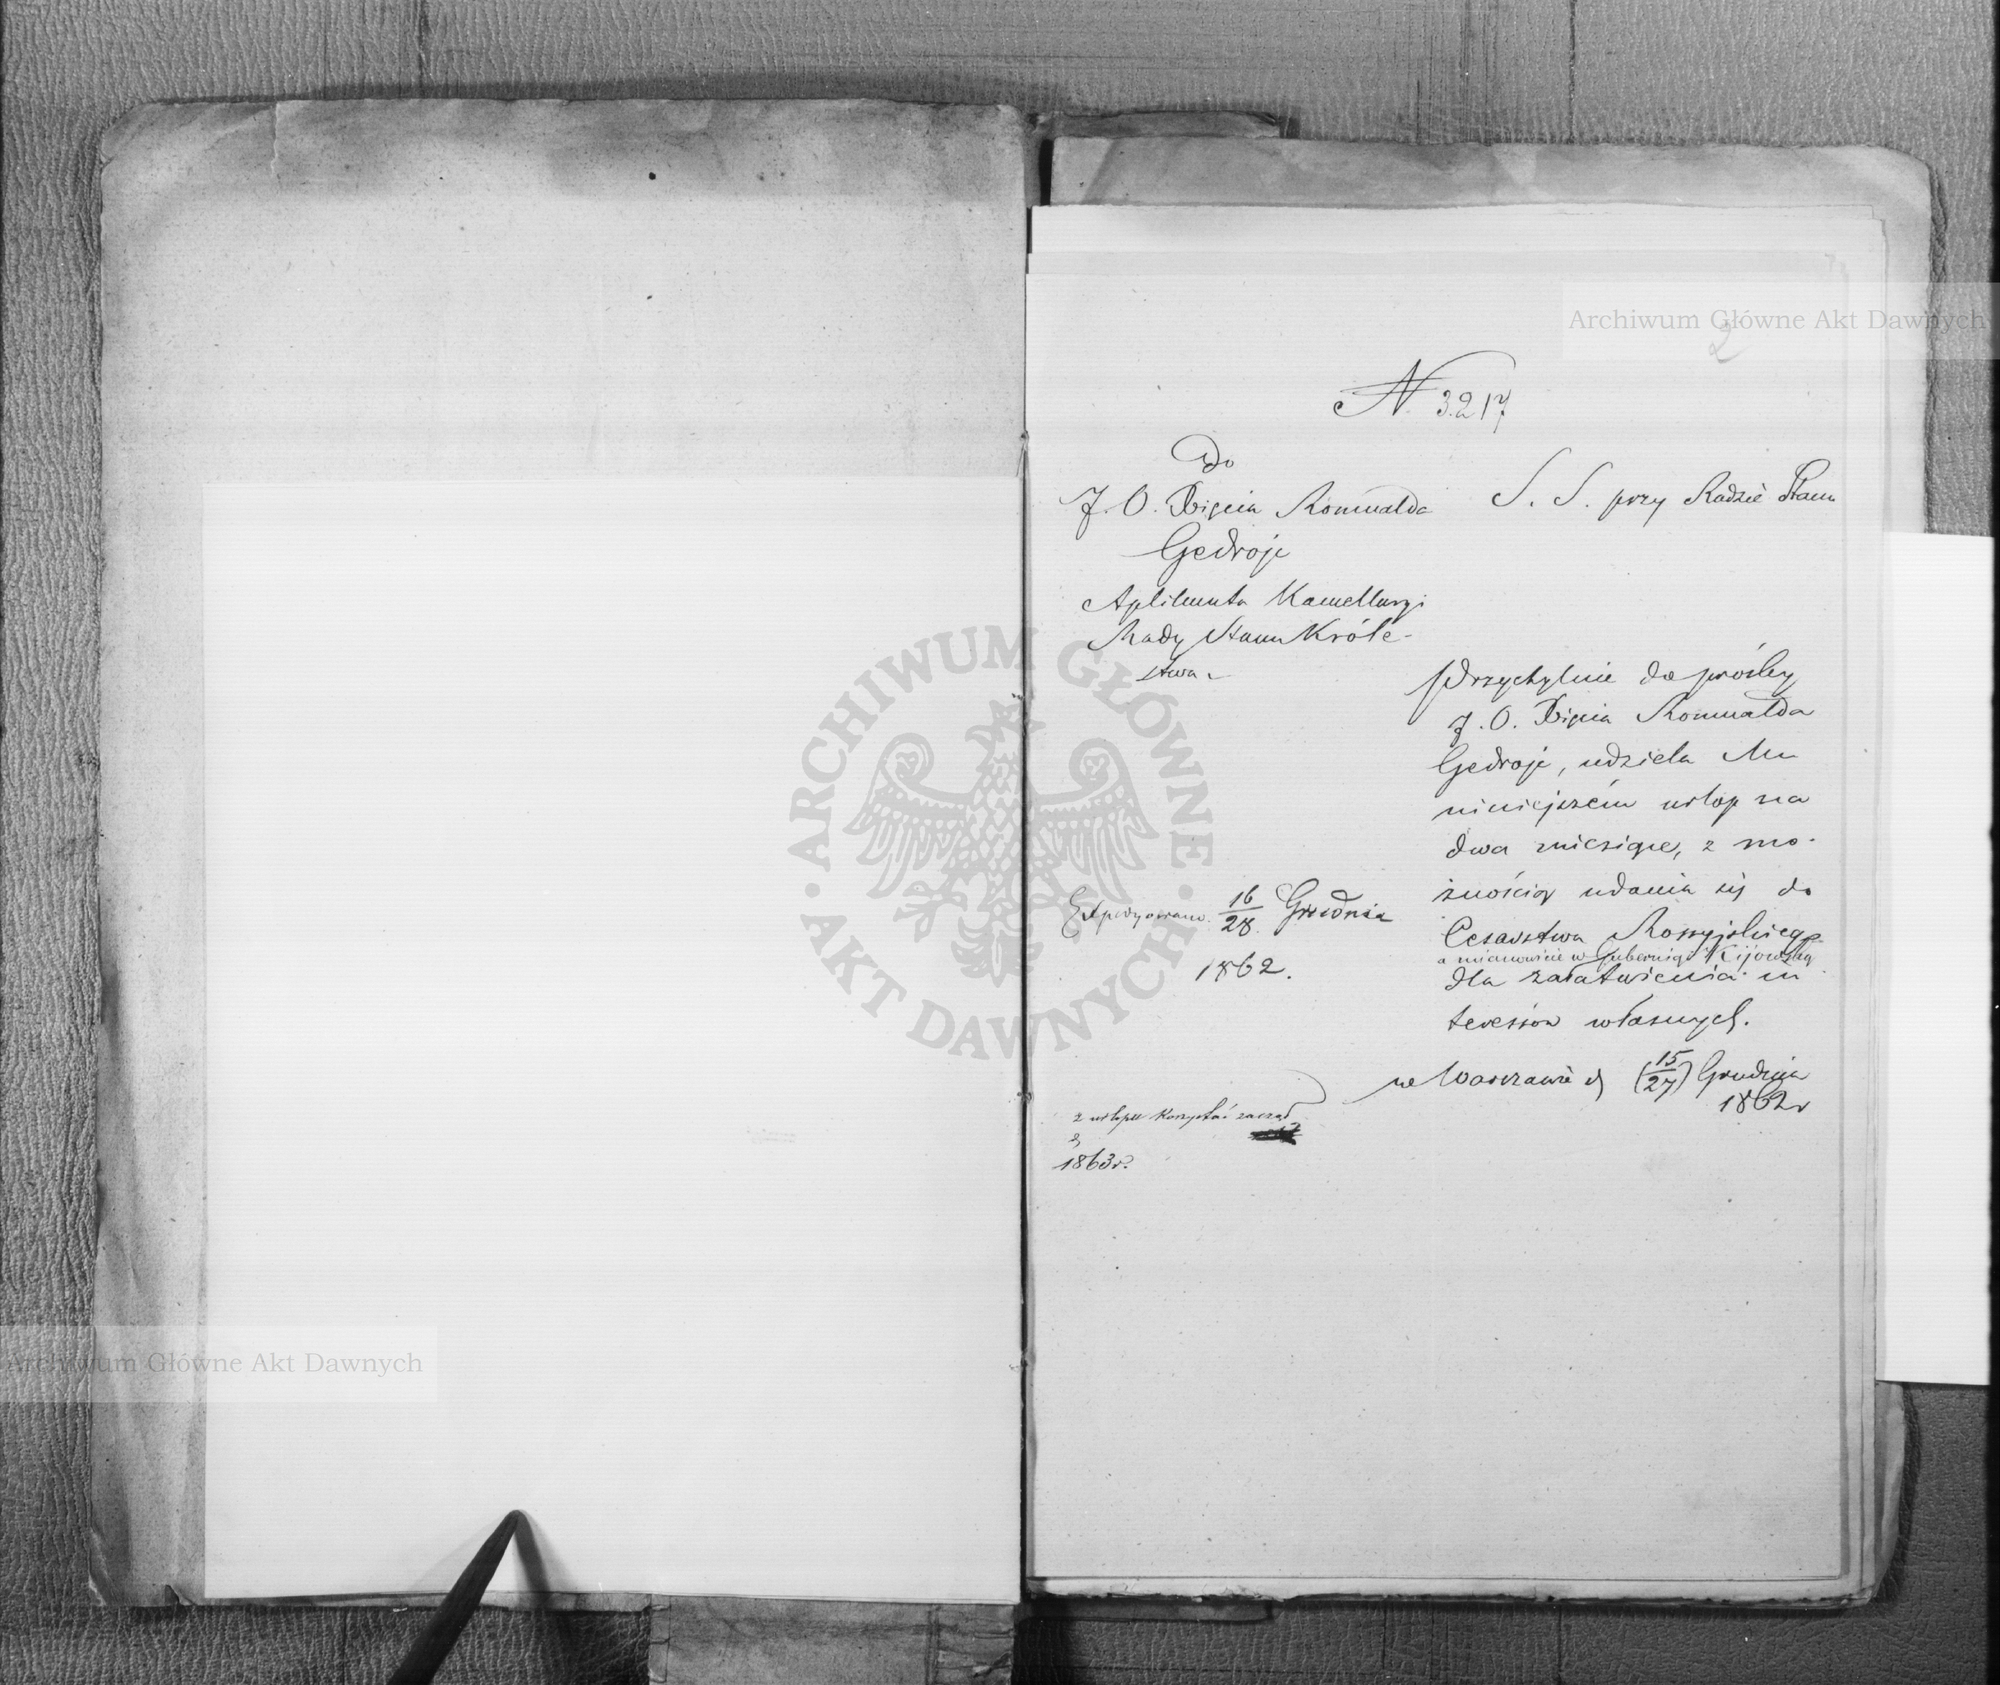 2
N 3217
Do
J. O. Xięcia Romualda
Gedrojc
Aplikanta Kancellaryi
Rady Stanu Króle-
stwa
S. S. przy Radzie Stanu
Przychylnie do prośby
J. O. Xięcia Romualda
Gedrojc, udziela Mu
niniejszém urlop na
dwa miesiące, z mo-
żnością udania się do
Cesarstwa Rossyjskiego
a mianowicie w Gubernię Kijowską
dla załatwienia in
teressów własnych.
w Warszawie d (15/27) Grudnia
1862 r
Expedyowano 16/28 Grudnia
1862.
z urlopu korzystać zaczął
d
1863 r.
Archiwum Główne Akt Dawnych
ARCHIWUM GŁÓWNE · AKT DAWNYCH ·
Archiwum Główne Akt Dawnych